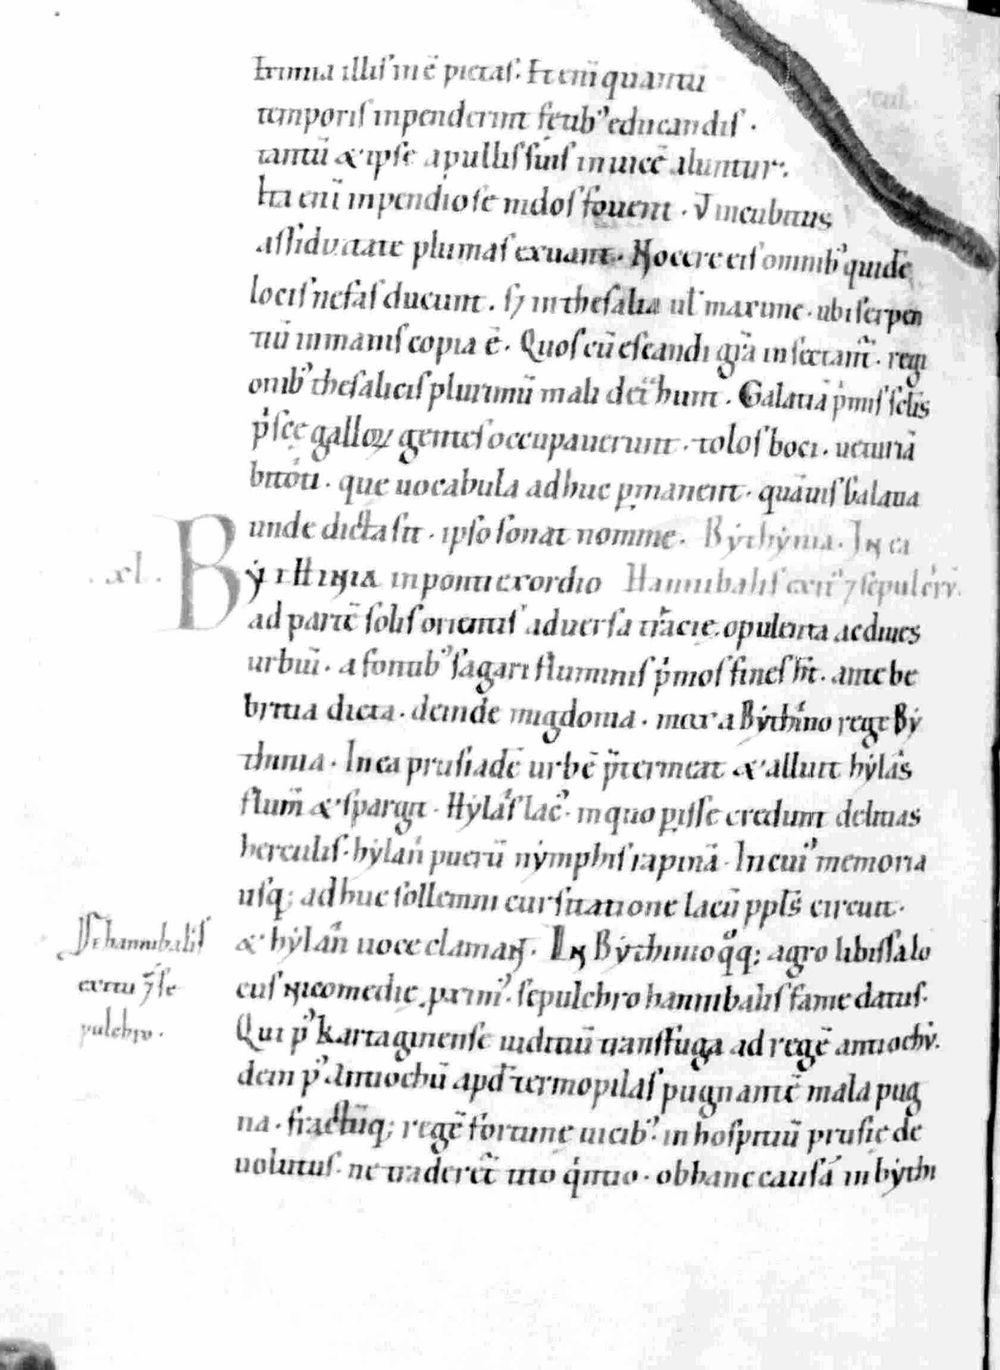 Eximia illis inē pietas. Etenī quantū
temporis inpenderint fetib' educandis ·
tantū & ipse a pullis suis in uicē aluntur.
Ita enī inpendiose nidos fouent · ut incubitus
assiduitate plumas exuant · Nocere eis omnib' quidē
locis nefas ducunt . sed in thesalia ul' maxime · ubi serpen
tiū inmanis copia ē · Quos cū escandi gr̄a insectant̄ · regi
onib' thesalicis plurimū mali det̄hunt . Galatiā p̄mis sclīs
p̄sce galloꝝ gentes occupauerunt · tolosboci · ueturiā
bitoti · que uocabula adhuc p̱manent · quāuis Galatia
unde dicta sit · ipso sonat nomine . Bẏthẏnia . In ea
. xl . BẏTHINIA in ponti exordio Hannibalis exit' ⁊ sepulcrū.
ad partē solis orientis aduersa tracie, opulenta ac diues
urbiū . a fontib' sagari fluminis p̄mos fines h̄t . ante be
britia dicta . deinde migdonia . mox a Bẏthīno rege Bẏ
thinia . In ea prusiadē urbē p̄termeat & alluit hẏlas
flum̄ & spargit . Hẏlas lac' . in quo p̱sisse credunt delitias
herculis . hẏlan puerū nẏmphis rapinā . In cui' memoria
usq; adhuc sollemni cursitatione lacū ppl̄s circuit .
& hẏlan uoce clamant . In Bẏthinio q̄q; agro libissa lo
De hannibalis
exitu ⁊ se
pulchro .
cus nicomedie p̱xim' . sepulchro hannibalis fame datus .
Qui p' kartaginense iudiciū transfuga ad regē antiochū .
dein p' Antiochū apd̄ termopilas pugnantē mala pug
na . fractūq; regē fortune uicib' . in hospitiū prusie de
uolutus . ne traderet̄ tito q̄ntio . ob hanc causā in bẏthi